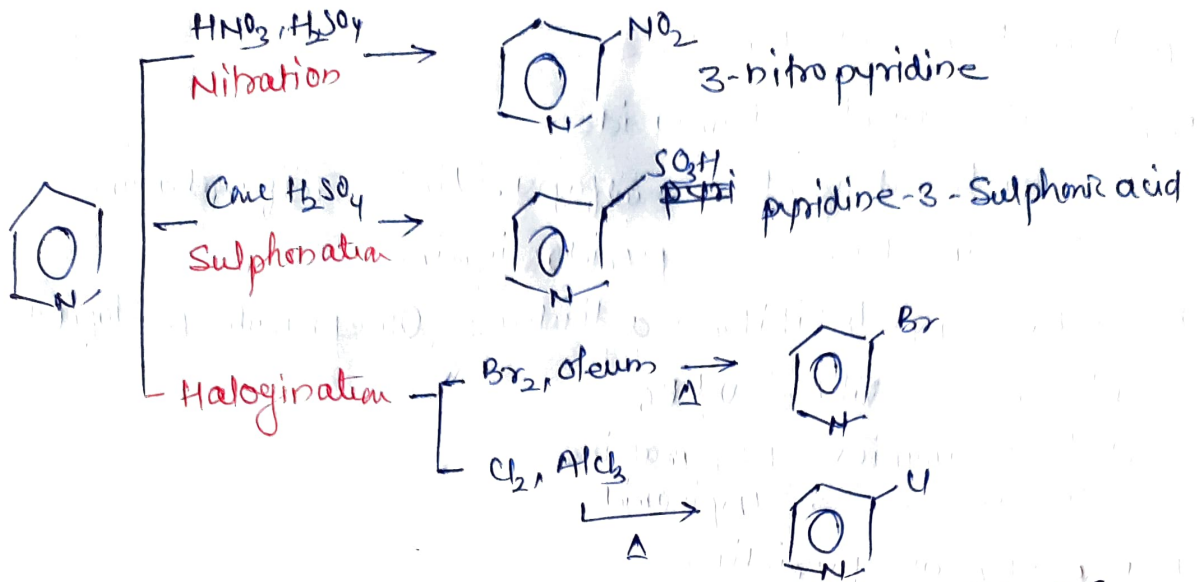 HNO3, H2SO4
Nitration
NO2
3-nitro pyridine
N
Conc H2SO4
Sulphonation
SO3H
pyridine-3-Sulphonic acid
N
N
Halogination
Br2, Oleum
Δ
Br
N
Cl2, AlCl3
Δ
Cl
N